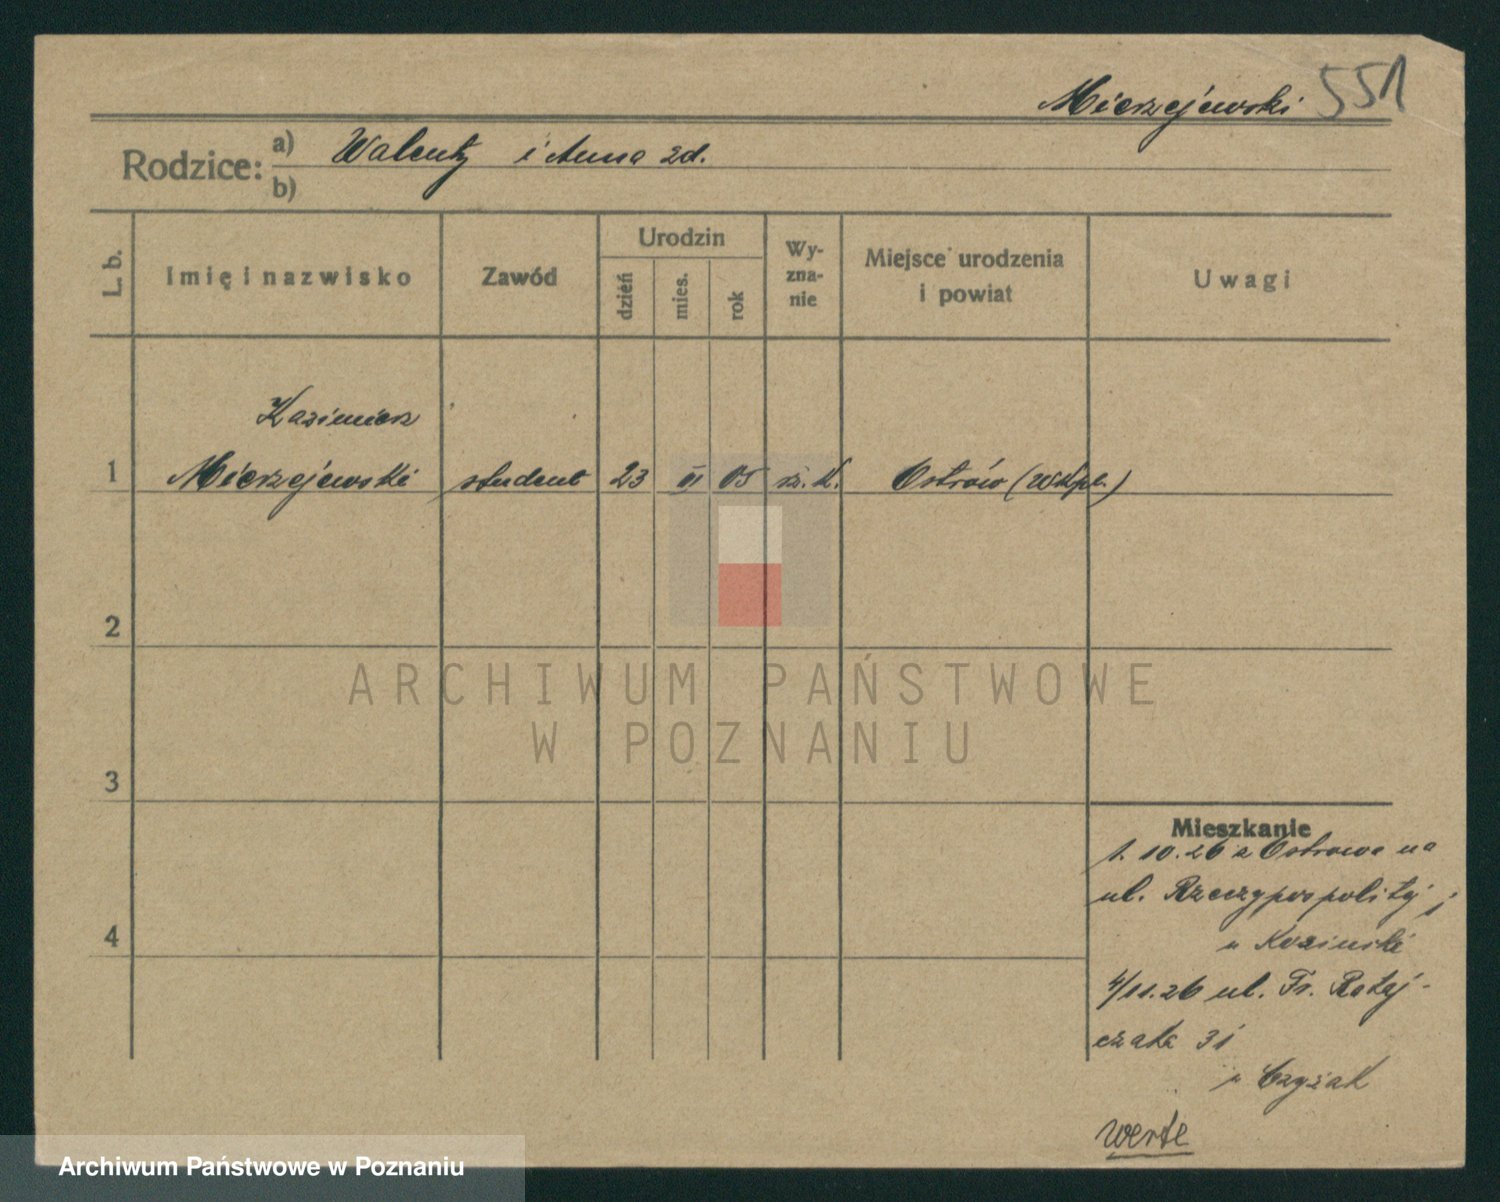 Mierzejewski 551
Rodzice: a) Walenty i Anna zd.
b)
L. b.
Imię i nazwisko
Zawód
Urodzin
dzień
mies.
rok
Wy-
zna-
nie
Miejsce urodzenia
i powiat
Uwagi
Kazimierz
1 Mierzejewski student 23 II 05 rz. k. Ostrów (Wlkp.)
2
3
4
ARCHIWUM PAŃSTWOWE
W POZNANIU
Mieszkanie
1.10.26 z Ostrowa na
ul. Rzeczypospolitej
u Kozinski
4/11.26 ul. Fr. Rataj-
czaka 31
u Czyżak
verte
Archiwum Państwowe w Poznaniu